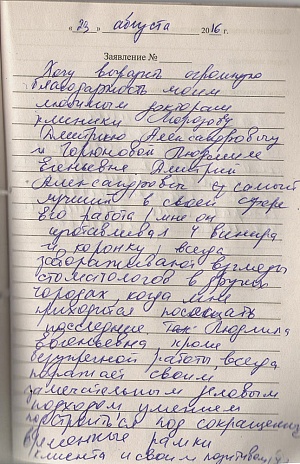 « 23 » августа 2016 г.
Заявление №
Хочу выразить огромную
благодарность моим
любимым докторам
клиники Морозову
Дмитрию Александровичу
и Горюновой Людмиле
Евгеньевне Дмитрий
Александрович самый
лучший в своей сфере
Его работа, мне он
устанавливал 4 винира
и коронку, всегда
завораживают взгляды
стоматологов в других
городах, когда мне
приходится посещать
последние так Людмила
Евгеньевна кроме
безупречной работы, всегда
поражает своим
замечательным деловым
подходом умением
подстроиться под сокращенные
временные рамки
клиента и своим позитивом